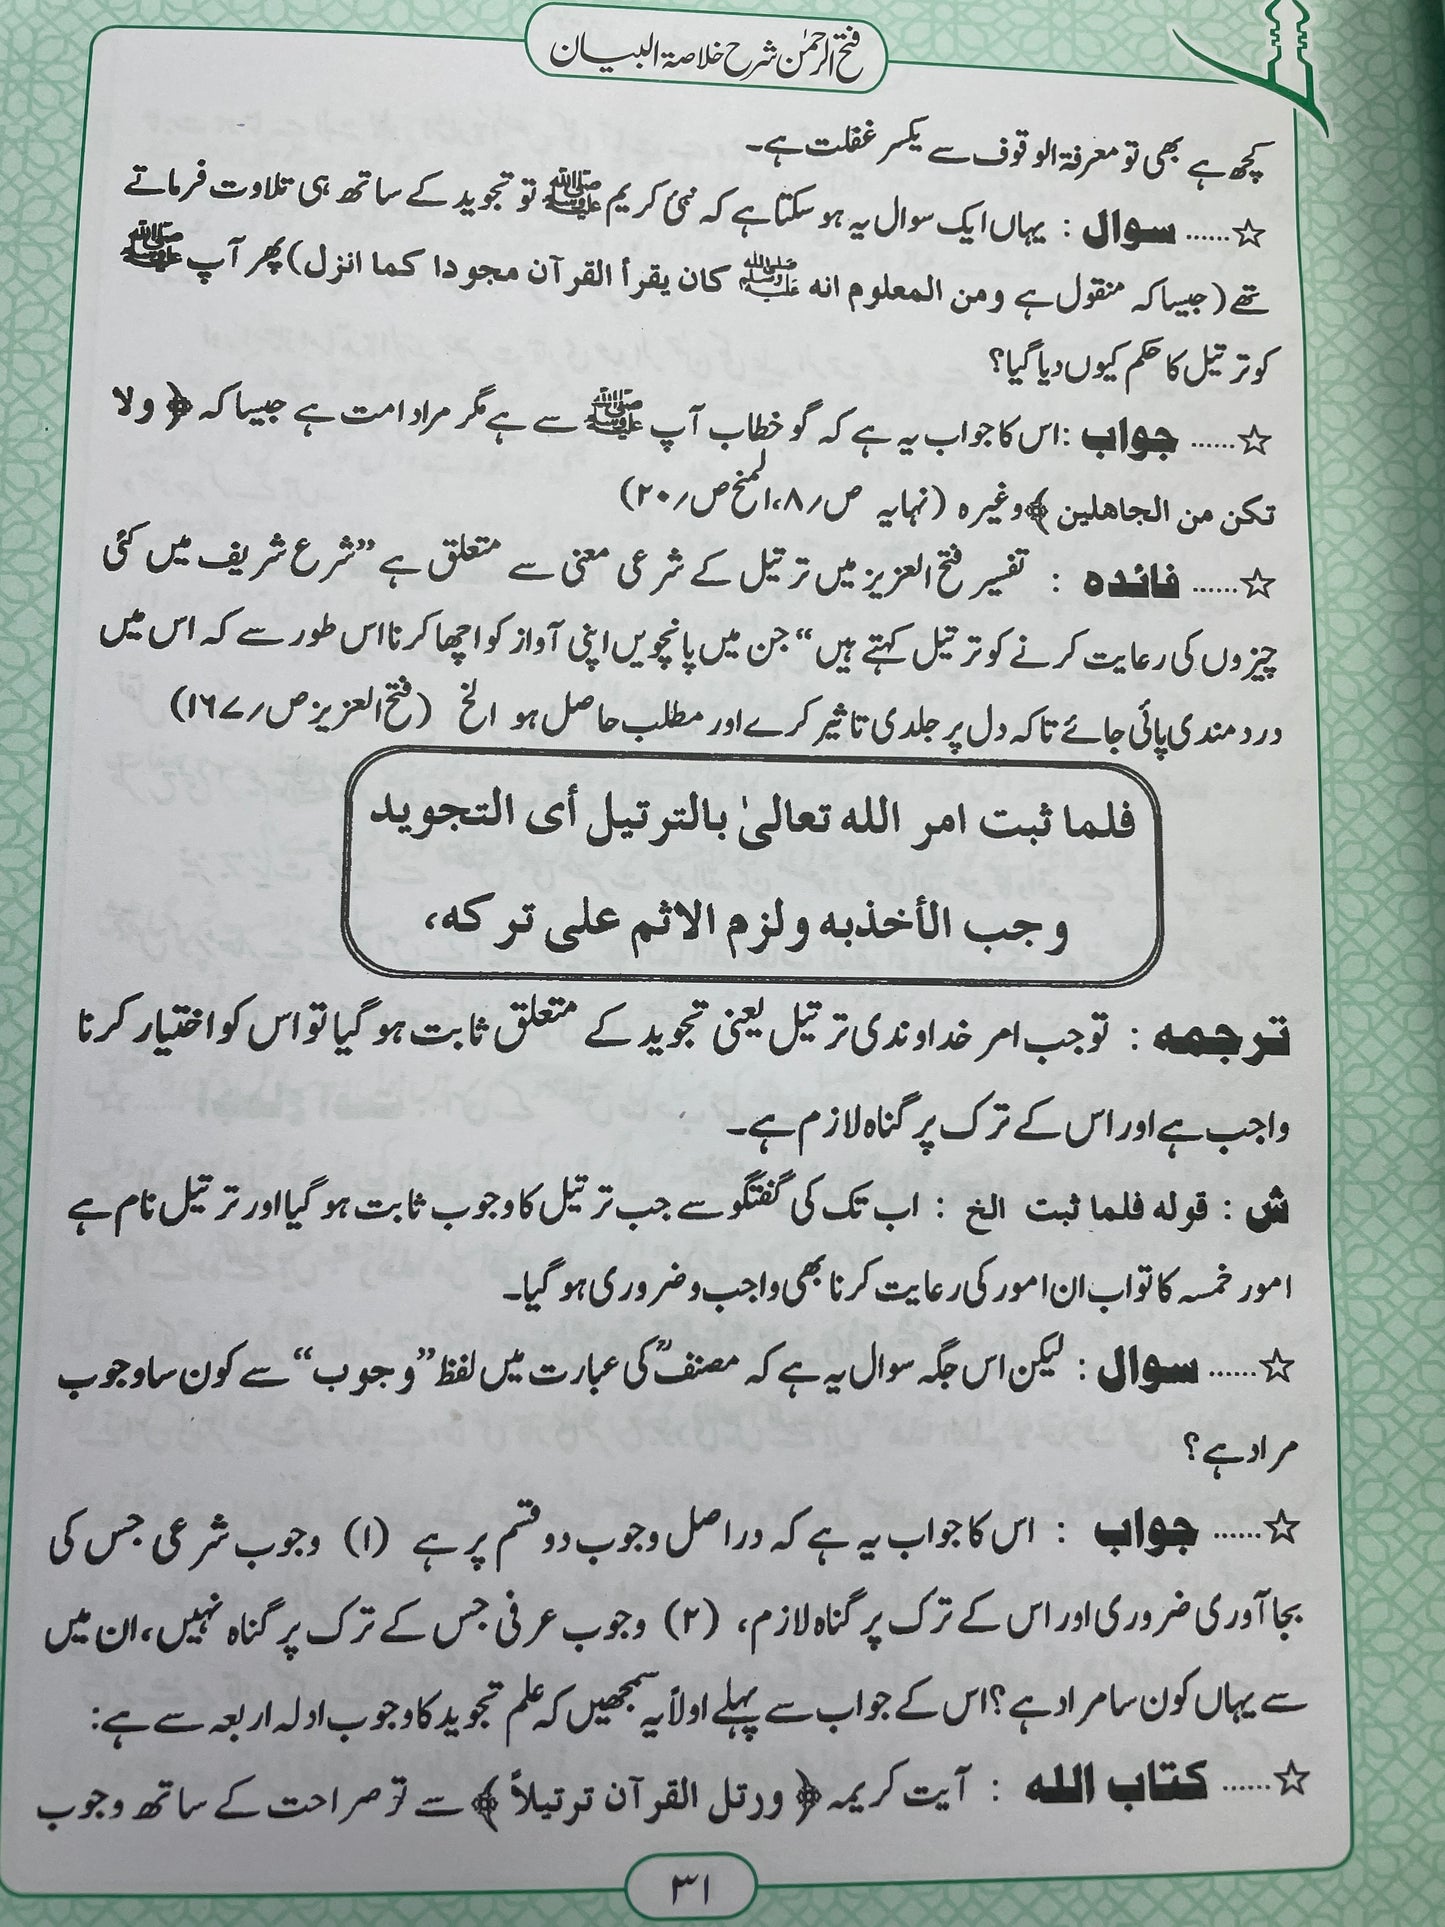 فتح الرحمٰن شرح خلاصۃ البیان
کچھ ہے بھی تو معرفۃ الوقوف سے یکسر غفلت ہے۔
☆...... سوال : یہاں ایک سوال یہ ہو سکتا ہے کہ نبیٔ کریم ﷺ تو تجوید کے ساتھ ہی تلاوت فرماتے
تھے (جیسا کہ منقول ہے ومن المعلوم انه ﷺ كان يقرأ القرآن مجودا كما انزل) پھر آپ ﷺ
کو ترتیل کا حکم کیوں دیا گیا؟
☆...... جواب : اس کا جواب یہ ہے کہ گو خطاب آپ ﷺ سے ہے مگر مراد امت ہے جیسا کہ ﴿ ولا
تكن من الجاهلين ﴾ وغیرہ (نہایہ ص/۸، المنح ص/۲۰)
☆...... فائدہ : تفسیر فتح العزیز میں ترتیل کے شرعی معنی سے متعلق ہے ”شرع شریف میں کئی
چیزوں کی رعایت کرنے کو ترتیل کہتے ہیں“ جن میں پانچویں اپنی آواز کو اچھا کرنا اس طور سے کہ اس میں
درد مندی پائی جائے تاکہ دل پر جلدی تاثیر کرے اور مطلب حاصل ہو الخ (فتح العزیز ص/۱۶۷)
فلما ثبت امر الله تعالىٰ بالترتيل أى التجويد
وجب الأخذبه ولزم الاثم على تركه،
ترجمہ : تو جب امر خداوندی ترتیل یعنی تجوید کے متعلق ثابت ہو گیا تو اس کو اختیار کرنا
واجب ہے اور اس کے ترک پر گناہ لازم ہے۔
ش : قوله فلما ثبت الخ : اب تک کی گفتگو سے جب ترتیل کا وجوب ثابت ہو گیا اور ترتیل نام ہے
امور خمسہ کا تو اب ان امور کی رعایت کرنا بھی واجب و ضروری ہو گیا۔
☆...... سوال : لیکن اس جگہ سوال یہ ہے کہ مصنفؒ کی عبارت میں لفظ ”وجوب“ سے کون سا وجوب
مراد ہے؟
☆...... جواب : اس کا جواب یہ ہے کہ دراصل وجوب دو قسم پر ہے (۱) وجوب شرعی جس کی
بجا آوری ضروری اور اس کے ترک پر گناہ لازم، (۲) وجوب عرفی جس کے ترک پر گناہ نہیں، ان میں
سے یہاں کون سا مراد ہے؟ اس کے جواب سے پہلے اولاً یہ سمجھیں کہ علم تجوید کا وجوب ادلہ اربعہ سے ہے:
☆...... کتاب اللہ : آیت کریمہ ﴿ ورتل القرآن ترتيلاً ﴾ سے تو صراحت کے ساتھ وجوب
۳۱